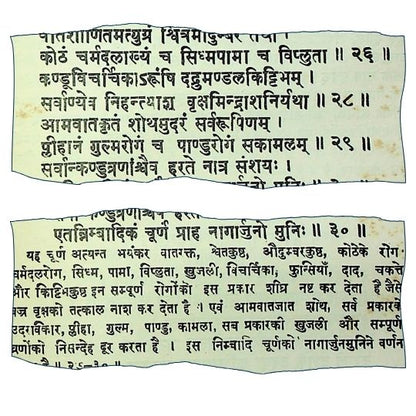 वातशोणितमत्युग्रं श्वित्रमौदुम्बरं तथा ।
कोठं चर्मदलाख्यं च सिध्मपामा च विप्लुता ॥ २६ ॥
कण्डूविचर्चिकाऽरूंषि दद्रुमण्डलकिट्टिभम् ।
सर्वाण्येव निहन्त्याशु वृक्षमिन्द्राशनिर्यथा ॥ २८ ॥
आमवातकृतं शोथमुदरं सर्वरूपिणम् ।
प्लीहानं गुल्मरोगं च पाण्डुरोगं सकामलम् ॥ २९ ॥
सर्वान्कण्डूव्रणांश्चैव हरते नात्र संशयः ।
एतन्निम्बादिकं चूर्णं प्राह नागार्जुनो मुनिः ॥ ३० ॥
यह चूर्ण अत्यन्त भयंकर वातरक्त, श्वेतकुष्ठ, औदुम्बरकुष्ठ, कोठेके रोग
चर्मदलरोग, सिध्म, पामा, विप्लुता, खुजली, विचर्चिका, फुन्सियाँ, दाद, चकत्ते
और किट्टिभकुष्ठ इन सम्पूर्ण रोगोंको इस प्रकार शीघ्र नष्ट कर देता है जैसे
वज्र वृक्षको तत्काल नाश कर देता है । एवं आमवातजात शोथ, सर्व प्रकारके
उदरविकार, प्लीहा, गुल्म, पाण्डु, कामला, सब प्रकारकी खुजली और सम्पूर्ण
व्रणोंको निसन्देह दूर करता है । इस निम्बादि चूर्णको नागार्जुनमुनिने वर्णन